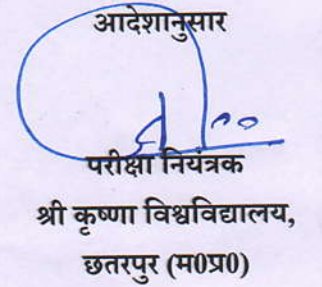 आदेशानुसार
परीक्षा नियंत्रक
श्री कृष्णा विश्वविद्यालय,
छतरपुर (म0प्र0)